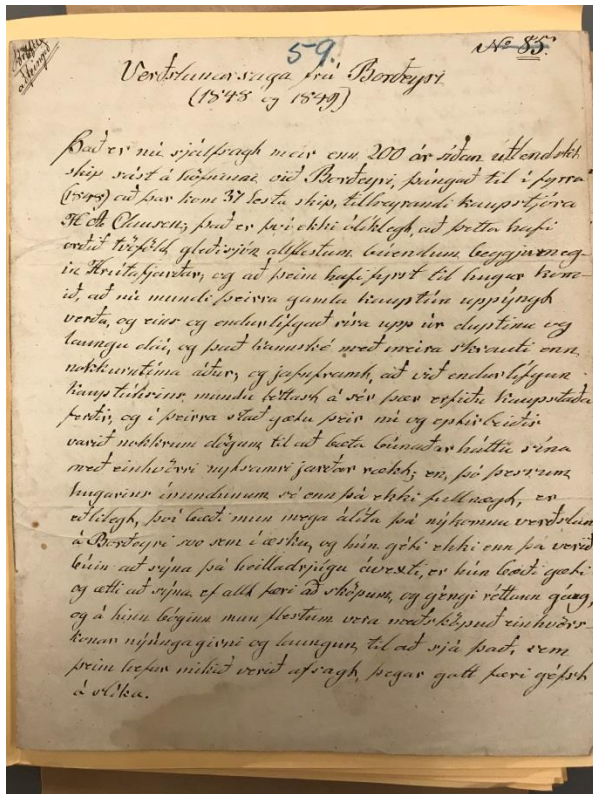 59.
No 85.
Verðslunarsaga frá Borðeyri
(1848 og 1849)
Það er nú sjálfsagt meir enn 200 ár síðan útlendskt
skip sást á höfninni við Borðeyri, þángað til í fyrra
(1848) að þar kom 37 lesta skip, tilheyrandi kaupstjóra
Clausen; það er því ekki ólíklegt, að þetta hafi
orðið tvöföld gleðisjón allflestum búendum beggjameg-
in Hrútafjarðar, og að þeim hafi fyrst til hugar kom-
ið, að nú mundi þeirra gamla kauptún uppýngt
verða, og eins og endurlífgað rísa upp úr duptinu og
laungu dái, og það kannské með meira skrauti enn
nokkurntíma áður, og jafnframt, að við endurlífgun
kauptúnsins mundu léttast á sér þær erfiðu kaupstaða
ferðir, og í þeirra stað gætu þeir nú og eptirleiðis
varið nokkrum dögum til að bæta búnaðarháttu sína
með einhvörri nytsamri jarðar rækt; en, þó þessum
hugarins ímundunum sé enn þá ekki fullnægt, er
eðlilegt, því bæði mun mega álíta þá nýkomnu verðslun
á Borðeyri svo sem í æsku, og hún géti ekki enn þá verið
búin að sýna þá heilladrjúgu ávexti, er hún bæði gæti
og ætti að sýna, ef allt færi að sköpum, og géngi réttann gáng,
og á hinn bóginn mun flestum vera meðsköpuð einhvörs-
konar nýúngagirni og laungun til að sjá það, sem
þeim hefur mikið verið afsagt, þegar gott færi géfst
á slíku.